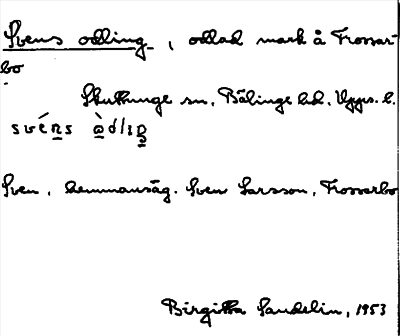 Svens odling, odlad mark å Trossar-
bo
Skuttunge sn, Bälinge hd, Upps. l.
svéns òdliŋ
Sven, hemmansäg. Sven Larsson, Trossarbo
Birgitta Sandelin, 1953